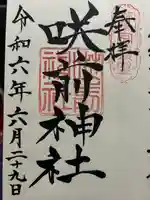 奉拝
咲前神社
令和六年六月二十九日